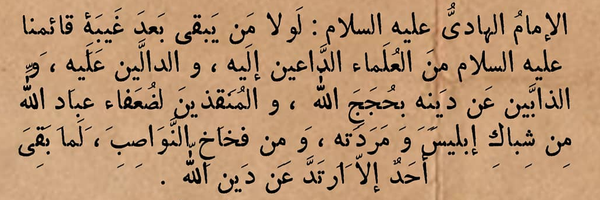 الإمامُ الهاديُّ عليه السلام : لَولا مَن يَبقى بَعدَ غَيبَةِ قائمنا
عليه السلام منَ العُلَماء الدَّاعين إلَيه ، و الدالّين عَلَيه ، وَ
الذابّين عَن دينه بحُجَجَ اللّه ، و المُنقذينَ لضُعَفاء عبادِ اللّه
مِن شِباكِ إبليسَ وَ مَرَدَته ، وَ من فخاخِ النَّوَاصِبِ ، لَما بَقىَ
أحَدٌ إلاّ ارتَدَّ عَن دَين اللّه .